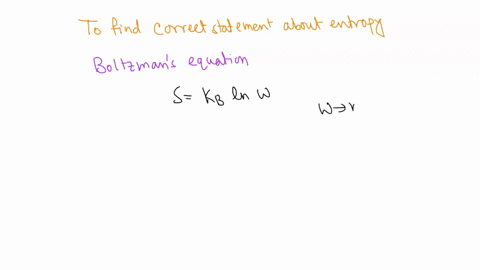 To find correct statement about entropy
Boltzman's equation
S= KB ln W
W→r